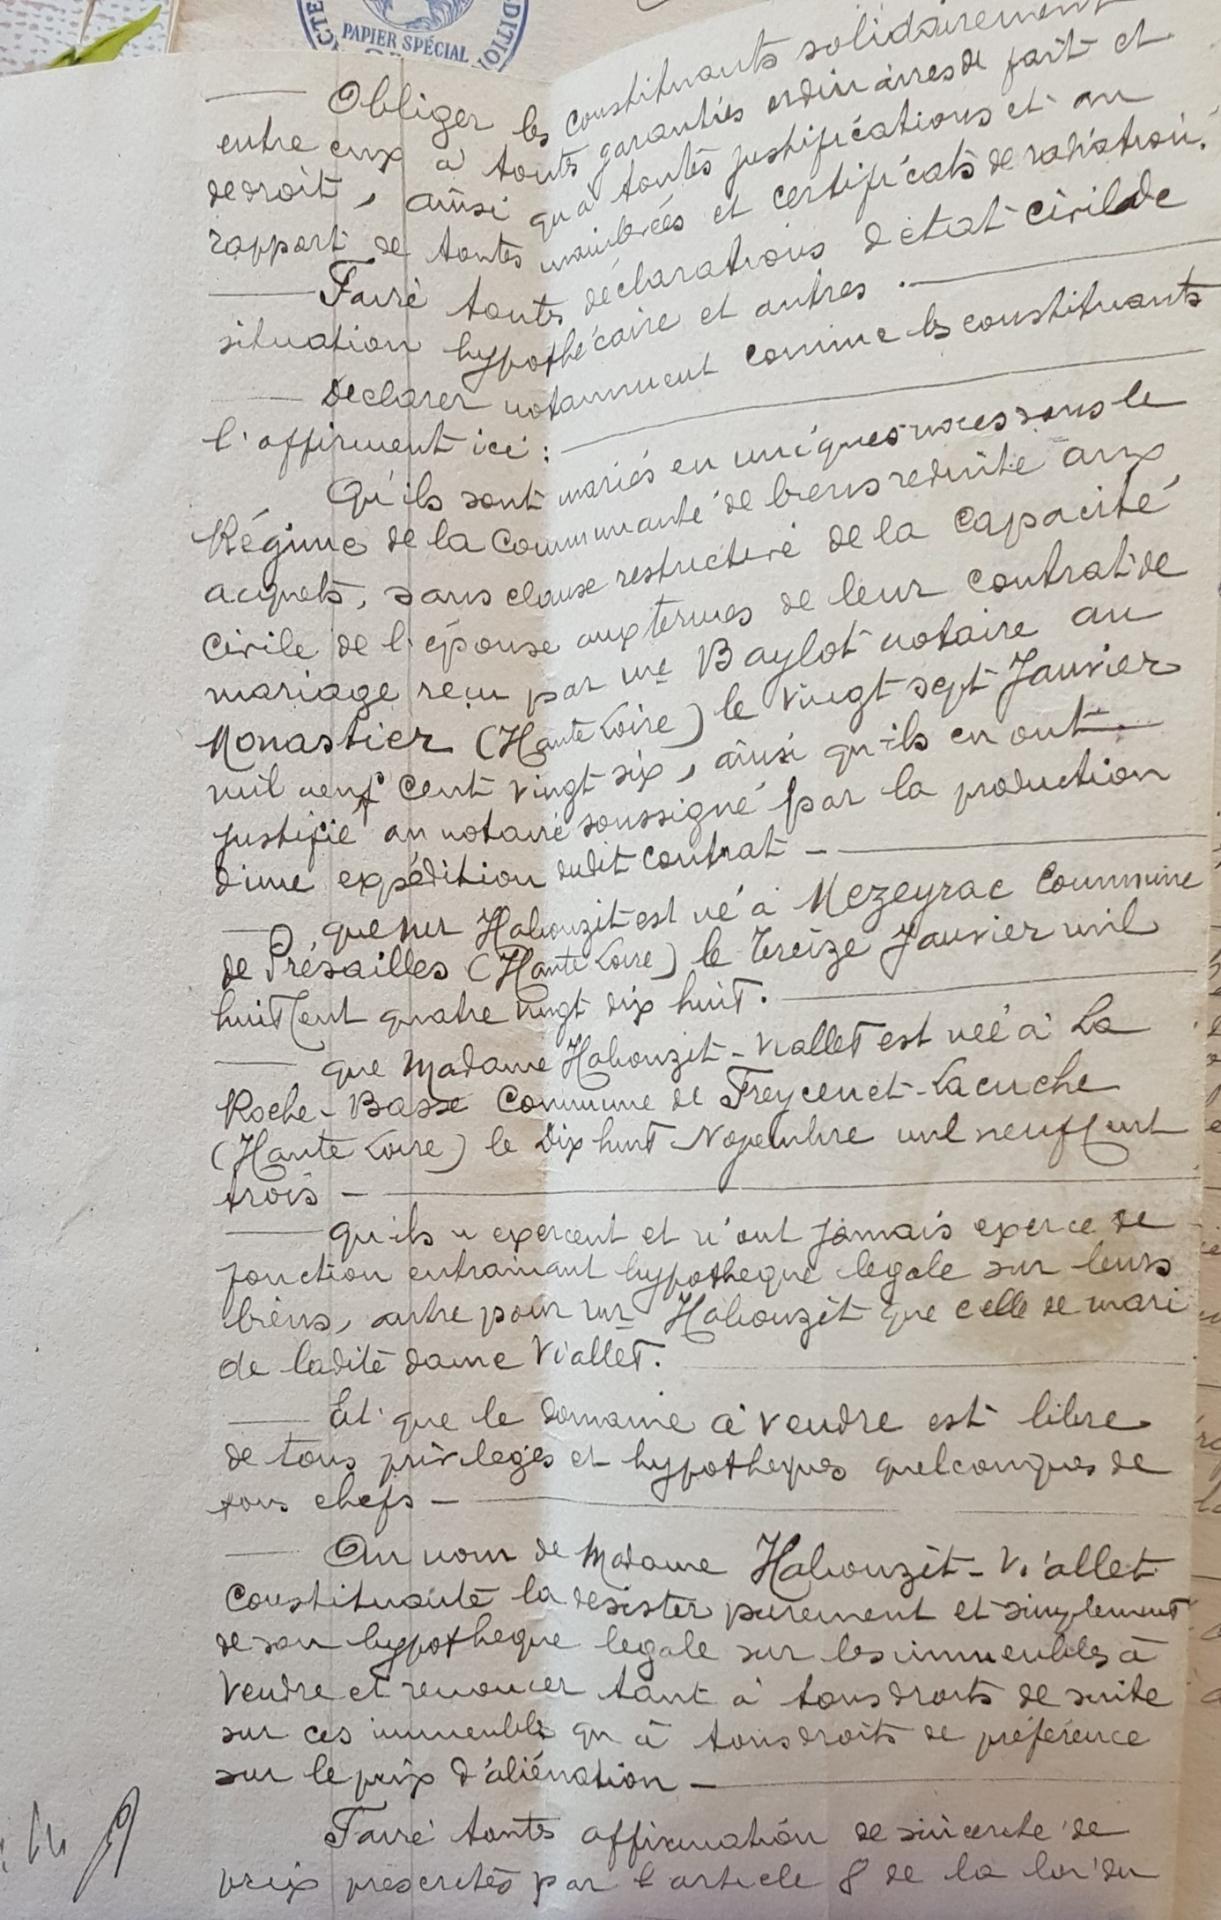 PAPIER SPÉCIAL
Obliger les constituants solidairement
entre eux à toutes garanties ordinaires de fait et
de droit, ainsi qu'à toutes justifications et au
rapport de toutes mainlevées et certificats de radiation.
Faire toutes déclarations d'état civil de
situation hypothécaire et autres.
Déclarer notamment comme les constituants
l'affirment ici :
Qu'ils sont mariés en uniques noces sous le
Régime de la Communauté de biens reduite aux
acquets, sans clause restrictive de la capacité
civile de l'épouse aux termes de leur contrat de
mariage reçu par Me Baylot notaire au
Monastier (Haute Loire) le vingt sept Janvier
mil neuf cent vingt six, ainsi qu'ils en ont
justifié au notaire soussigné par la production
d'une expédition dudit contrat —
que Mr Habouzit est né à Mezeyrac Commune
de Présailles (Haute Loire) le treize Janvier mil
huit cent quatre vingt dix huit.
que Madame Habouzit - Viallet est née à La
Roche - Basse Commune de Freycenet - Lacuche
(Haute Loire) le dix huit Novembre mil neuf cent
trois —
qu'ils n'exercent et n'ont jamais exercé de
fonction entrainant hypotheque legale sur leurs
biens, autre pour Mr Habouzit que celle de mari
de ladite dame Viallet.
Et que le domaine à vendre est libre
de tous privileges et hypotheques quelconques de
tous chefs —
Au nom de Madame Habouzit - Viallet
Constituante la desister purement et simplement
de son hypotheque legale sur les immeubles à
Vendre et renoncer tant à tous droits de suite
sur ces immeubles qu'à tous droits de préférence
sur le prix d'aliénation —
Faire toutes affirmation de sincerite de
prix prescrites par l'article 8 de la loi du